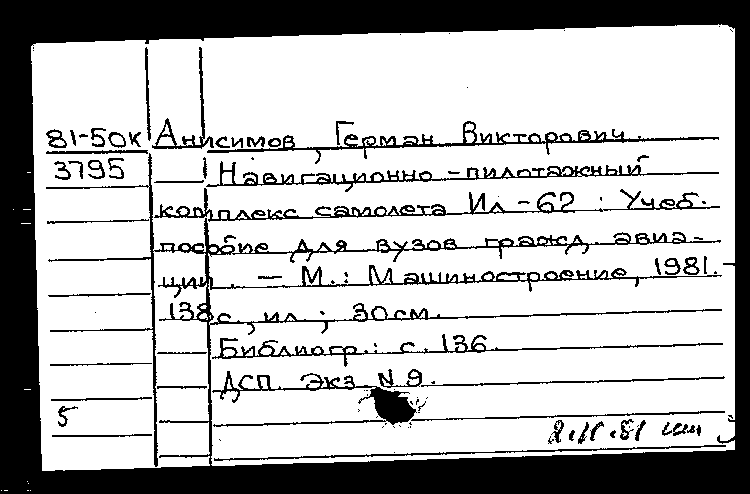 81-50К Анисимов, Герман Викторович.
3795 Навигационно-пилотажный
комплекс самолета Ил-62 : Учеб.
пособие для вузов гражд. авиа-
ции. — М.: Машиностроение, 1981.-
138с., ил ; 30см.
Библиогр.: с. 136.
ДСП. Экз. N 9.
5